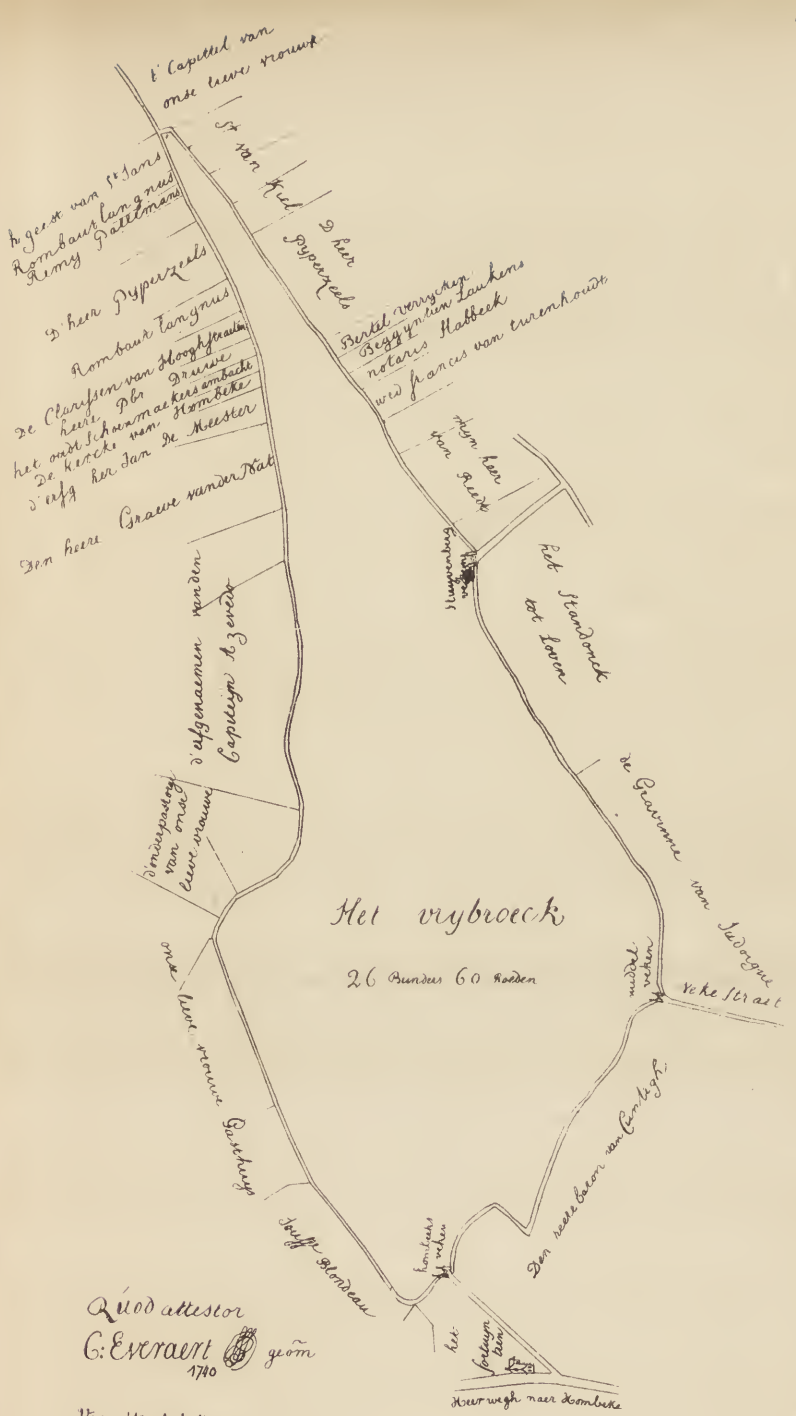 t' Capittel van
onse lieve vrouwe
St van Kiel
D heer
Pyperzeels
h geest van St Jans
Rombaut langnus
Remy Pattelmans
D' heer Pyperzeels
Rombaut langnus
De Clarissen van Hooghstraeten
heere Pbr Druwe
het oudt Schoenmaekersambacht
De Kercke van Hombeke
d'erfg her Jan De Meester
Den heere Graewe vander Nat
Bertel verrycken
Beggyntien Laukens
notaris Habbeek
wed francis van turenhoudt
mijn heer
van Reedt
veken
het Standonck
tot Loven
d'erfgenaemen vanden
Capiteijn Azevedo
d'onderpastorye
van onse
lieve vrouwe
de Gravinne van Judoigne
Het vrybroeck
26 Bunders 60 Roeden
middel
veken
veke Straet
onse lieve vrouwe Gasthuys
Den heere baron van
Jouffe Blondeau
hombeeks
veken
het
fortuijn
tien
Heer wegh naer Hombeke
Quod attestor
C: Everaert geom̃
1740